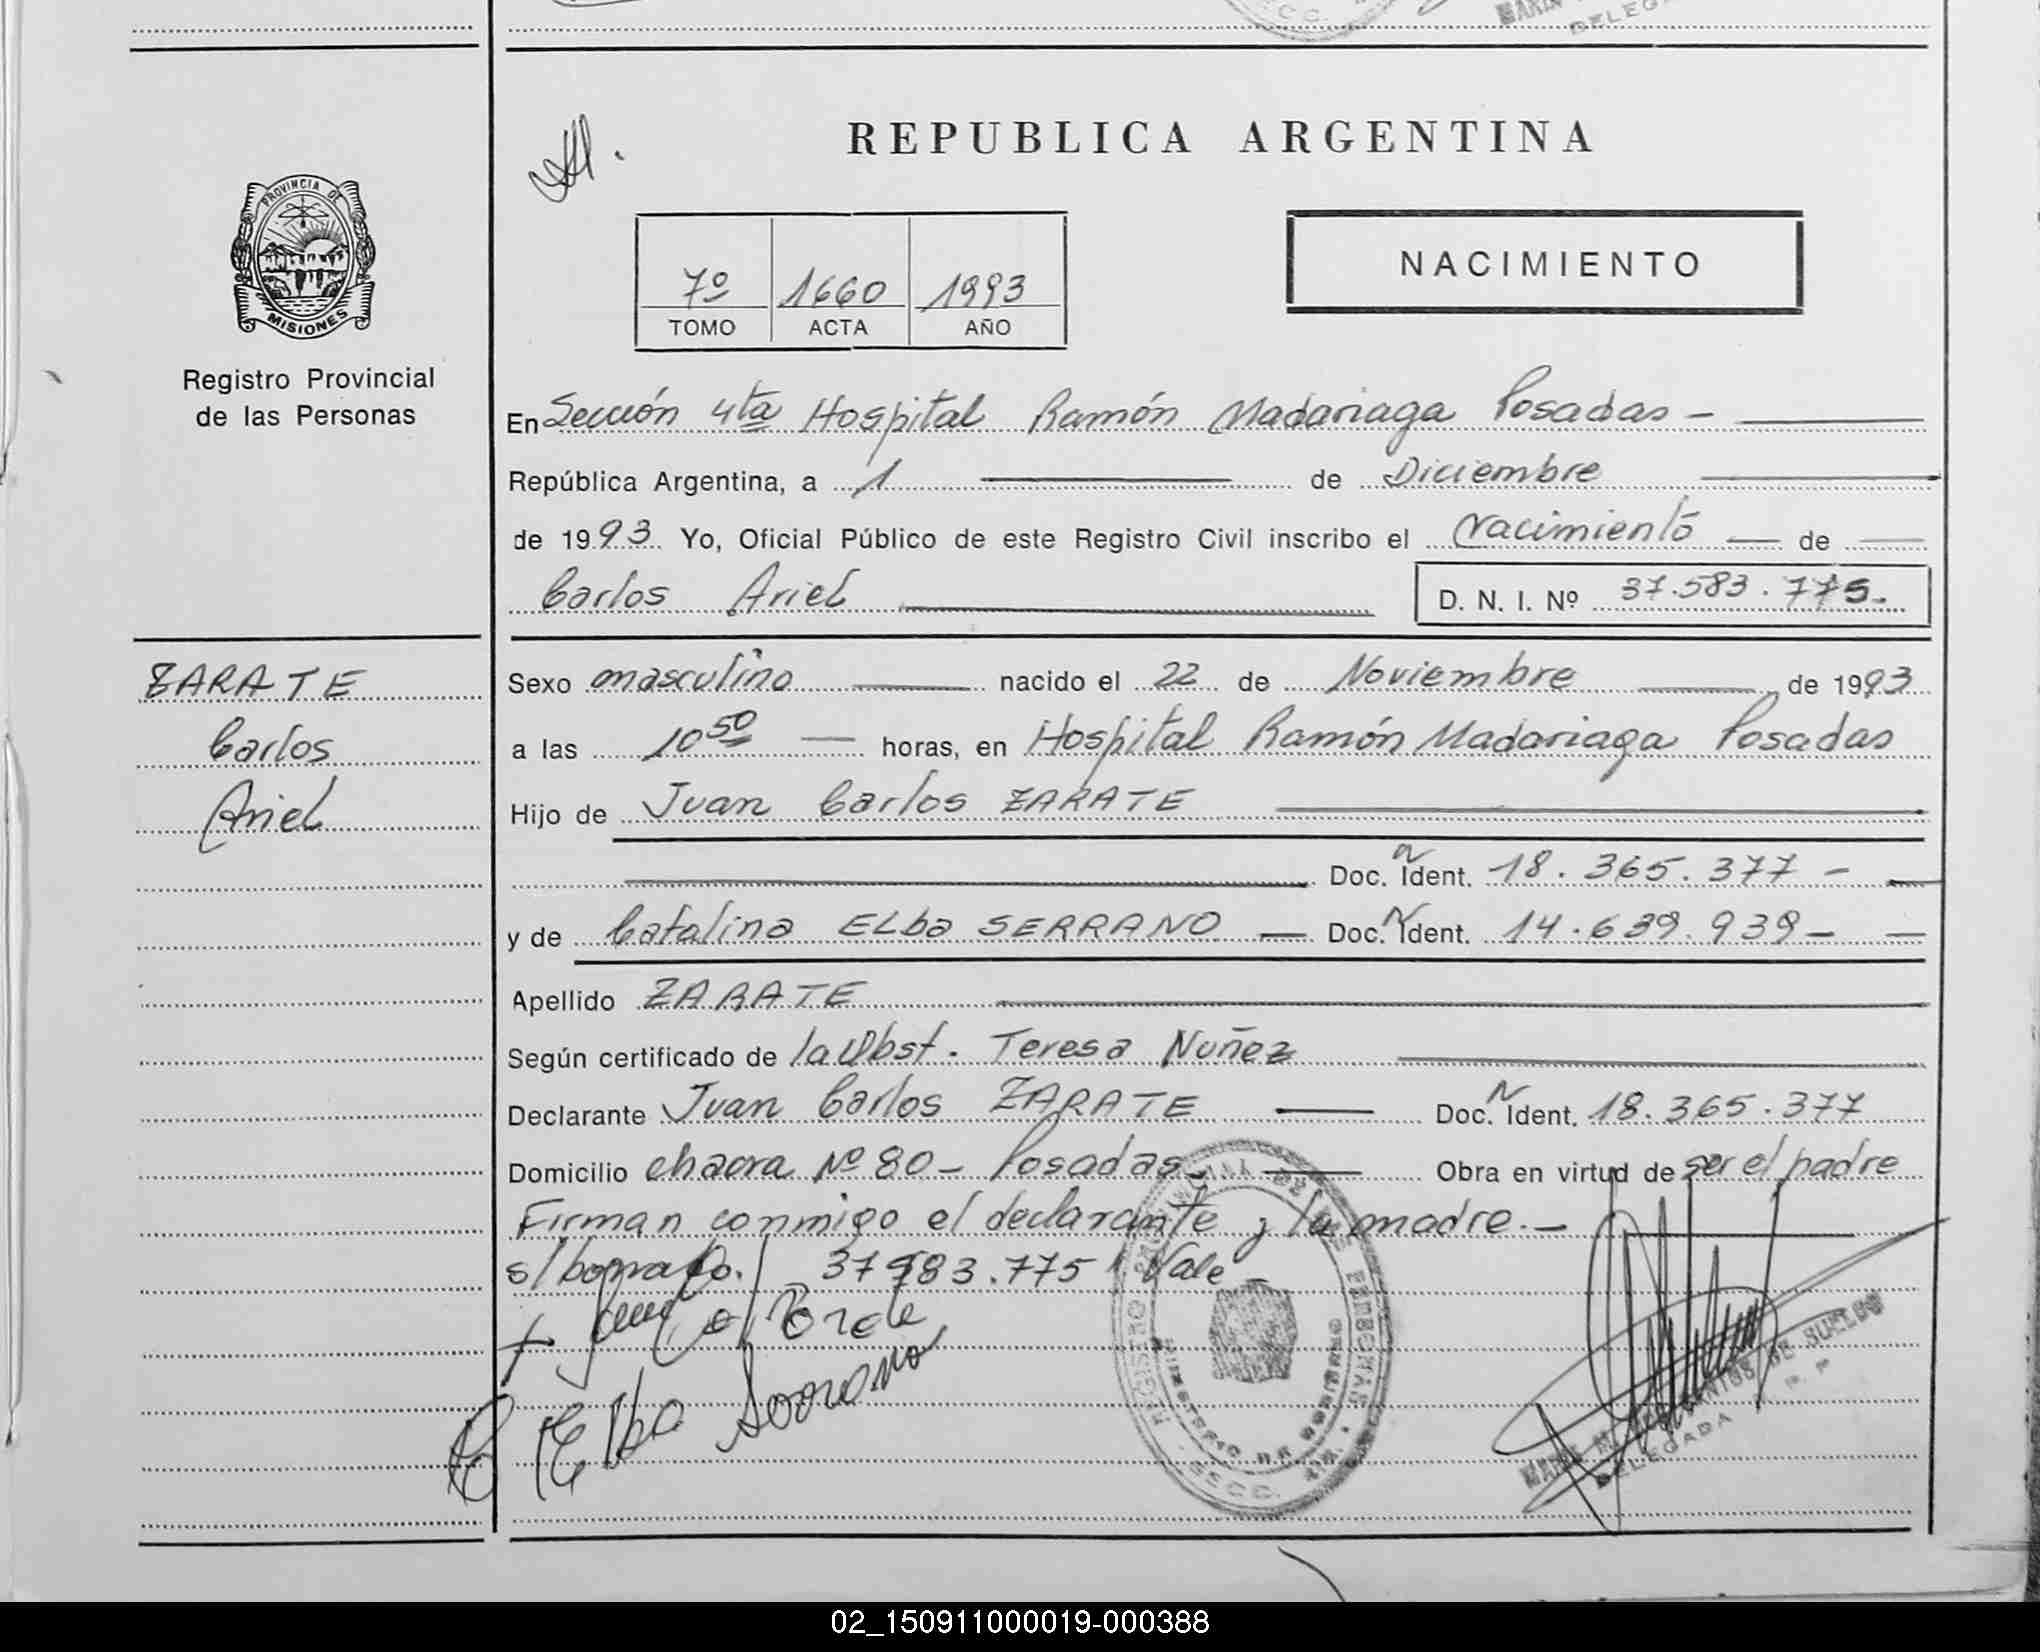 REPUBLICA ARGENTINA
PROVINCIA DE
MISIONES
Registro Provincial
de las Personas
7º 1660 1993
TOMO ACTA AÑO
NACIMIENTO
En Sección 4ta Hospital Ramón Madariaga Posadas -
República Argentina, a 1 de Diciembre
de 1993 Yo, Oficial Público de este Registro Civil inscribo el Nacimiento de
Carlos Ariel D. N. I. Nº 37.583.775.-
ZARATE
Carlos
Ariel
Sexo masculino nacido el 22 de Noviembre de 1993
a las 10 50 horas, en Hospital Ramón Madariaga Posadas
Hijo de Juan Carlos ZARATE
Doc. N Ident. 18.365.377 -
y de Catalina Elba SERRANO Doc. N Ident. 14.639.939 -
Apellido ZARATE
Según certificado de la Obst. Teresa Nuñez
Declarante Juan Carlos ZARATE Doc. N Ident. 18.365.377
Domicilio chacra Nº 80 - Posadas - Obra en virtud de ser el padre
Firman conmigo el declarante y la madre. -
s/borrado. 37583.775 Vale -
Elba Serrano
REGISTRO PROVINCIAL DE LAS PERSONAS
MINISTERIO DE GOBIERNO
SECC.
DE SUELDO
DELEGADA
02_150911000019-000388